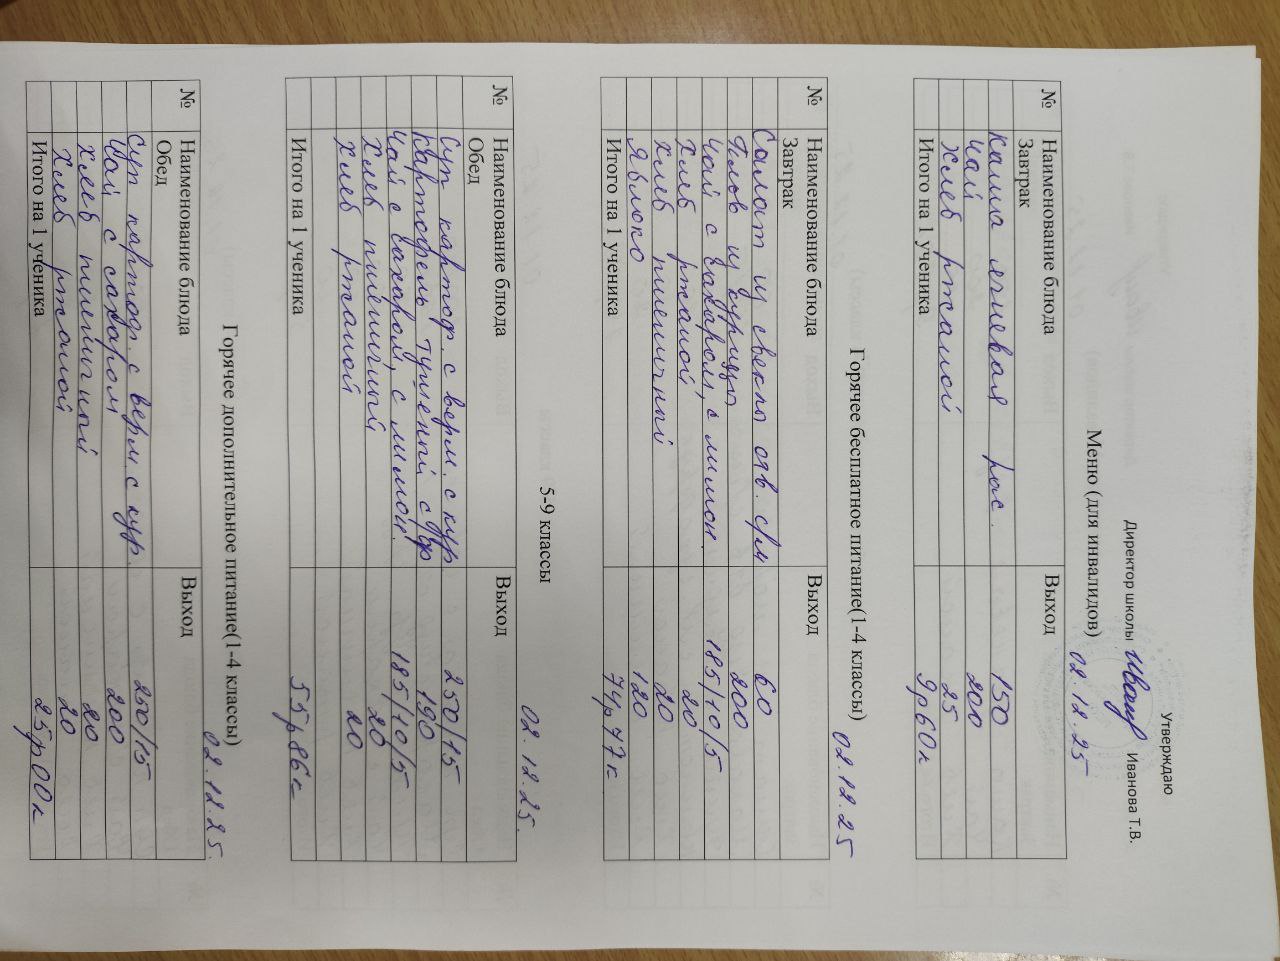 Утверждаю
Директор школы Иванова Т.В.
Меню (для инвалидов) 02.12.25
№ Наименование блюда Выход
Завтрак
Каша ячневая рас. 150
Чай 200
Хлеб ржаной 25
Итого на 1 ученика 9р60к
Горячее бесплатное питание(1-4 классы) 02.12.25
№ Наименование блюда Выход
Завтрак
Салат из свеклы отв. с/м 60
Плов из курицы 200
Чай с сахаром, с лимон. 185/10/5
Хлеб ржаной 20
Хлеб пшеничный 20
Яблоко 120
Итого на 1 ученика 74р77к
5-9 классы 02.12.25.
№ Наименование блюда Выход
Обед
Суп картоф. с верм. с кур 250/15
Картофель тушеный с фр 190
Чай с сахаром, с лимон. 185/10/5
Хлеб пшеничный 20
Хлеб ржаной 20
Итого на 1 ученика 55р86к
Горячее дополнительное питание(1-4 классы) 02.12.25.
№ Наименование блюда Выход
Обед
Суп картоф. с верм. с кур. 250/15
Чай с сахаром 200
Хлеб пшеничный 20
Хлеб ржаной 20
Итого на 1 ученика 25р00к